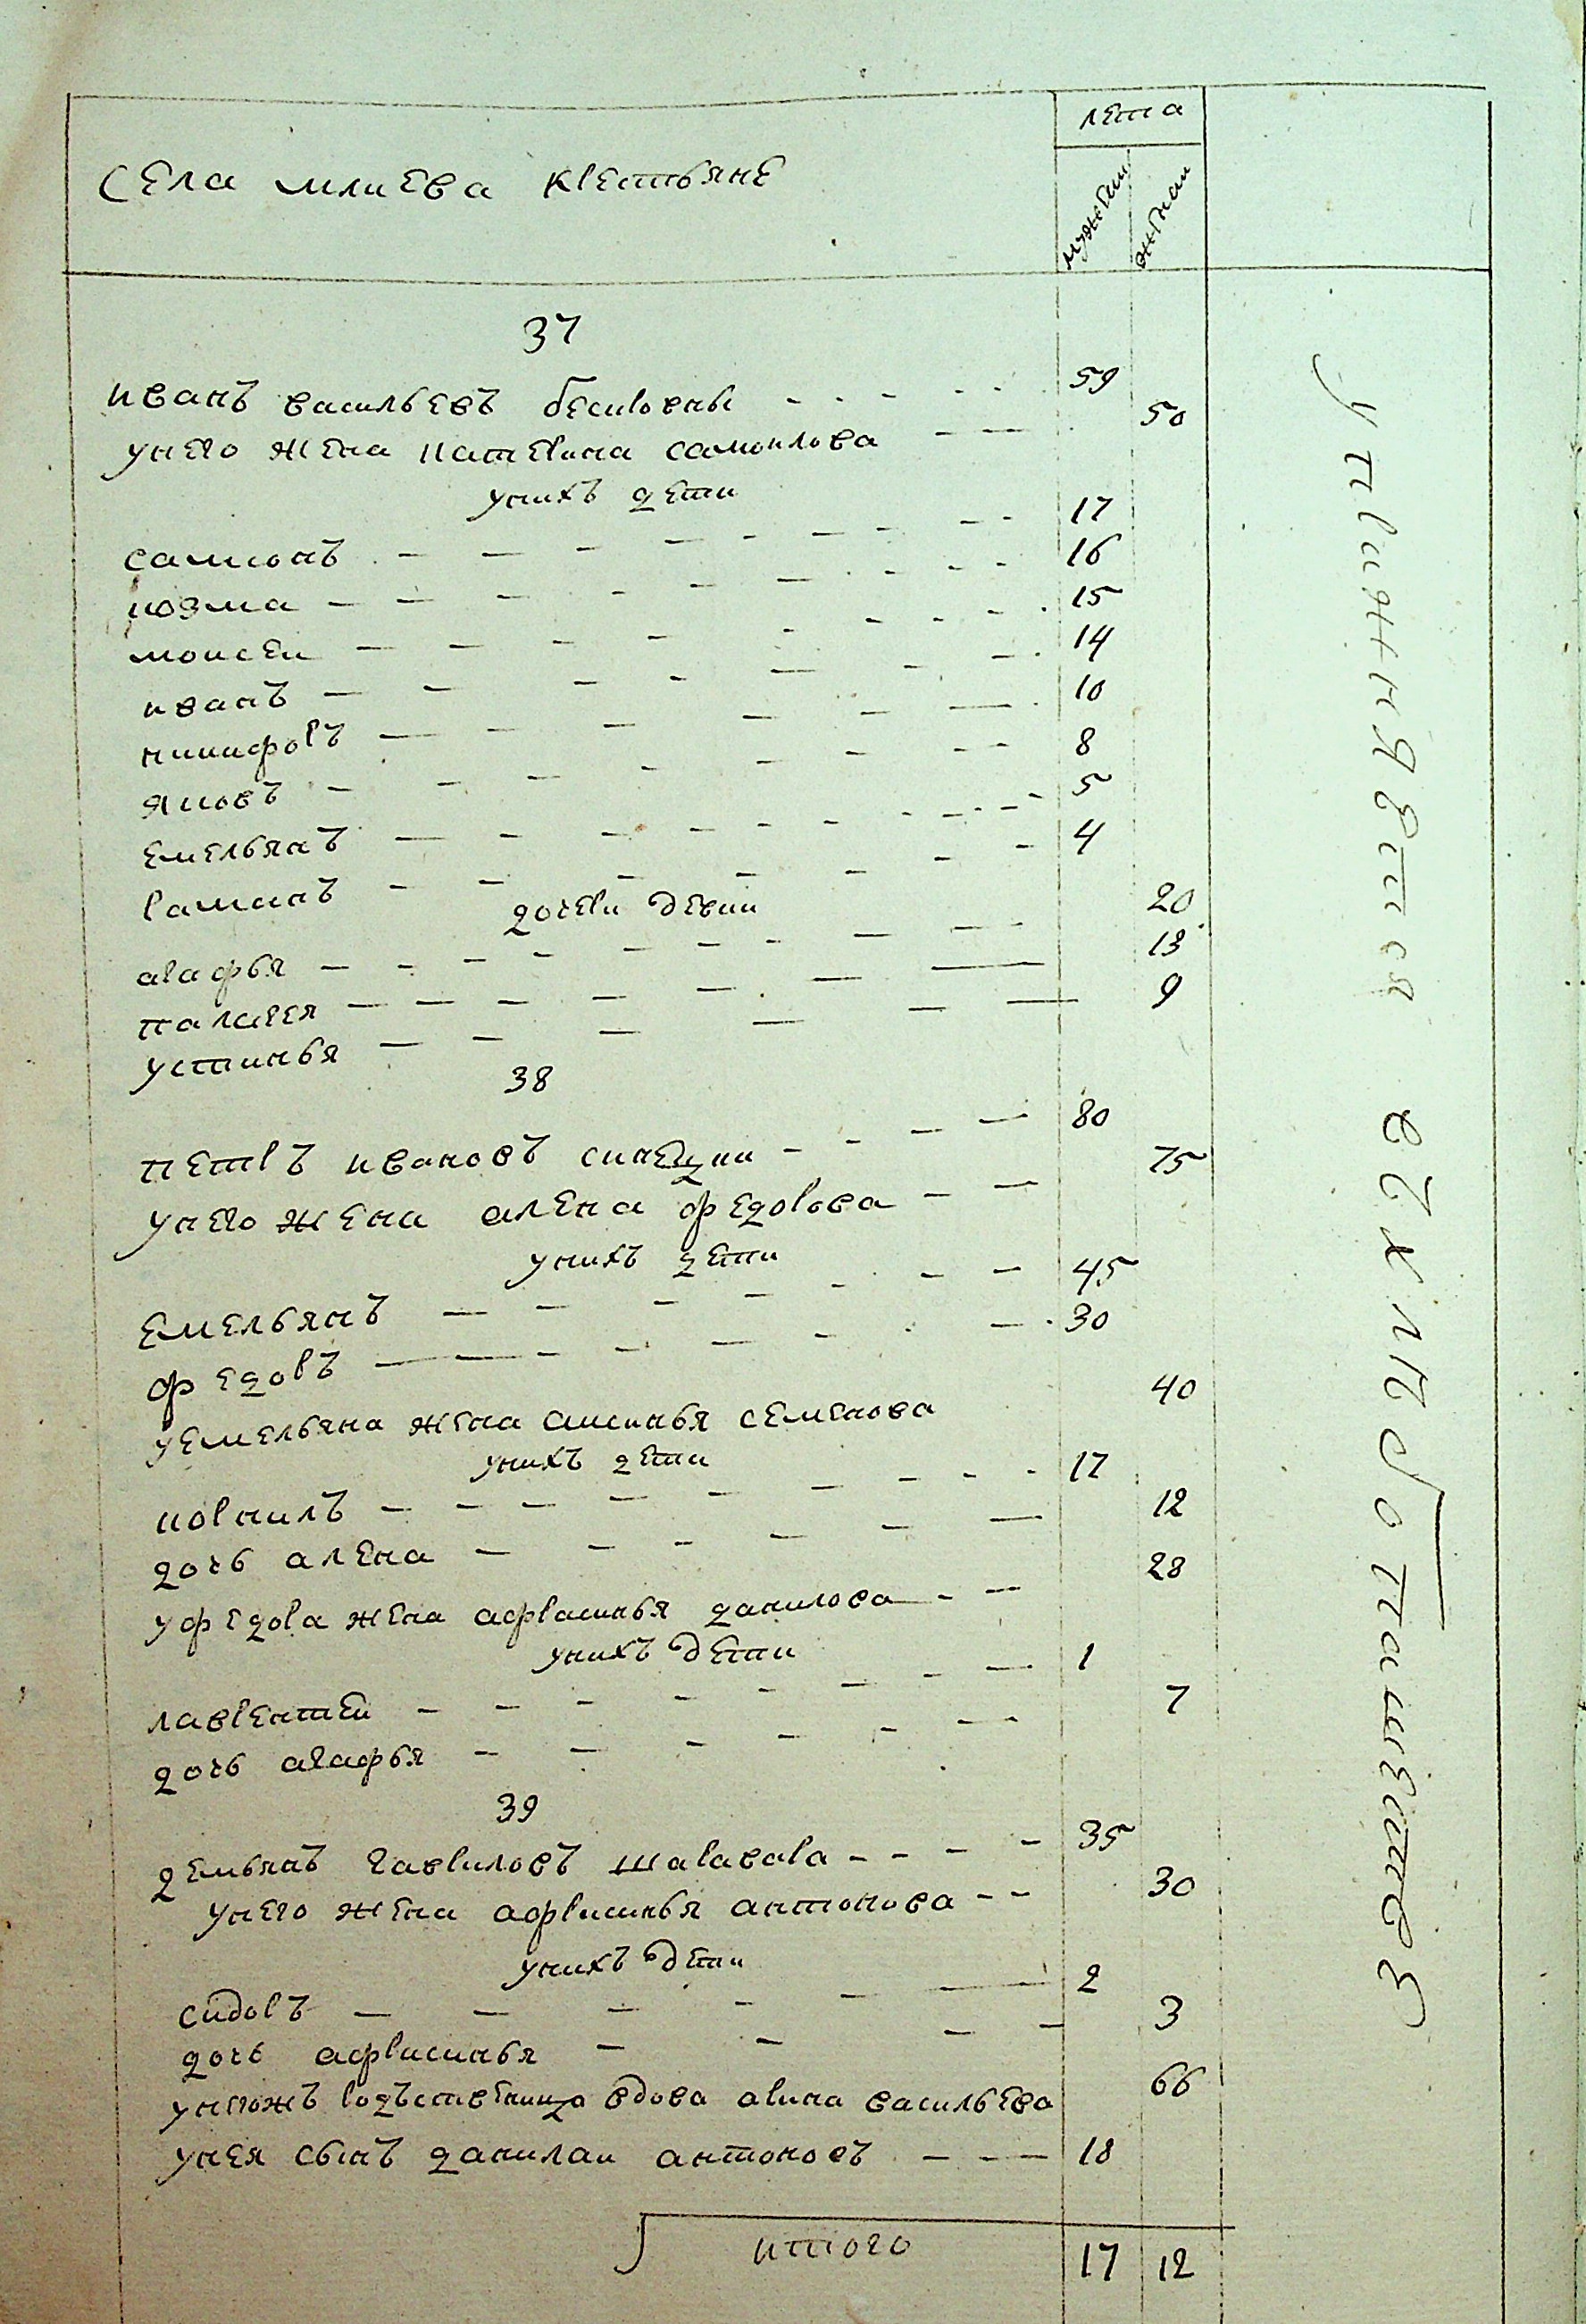 села млиева крестьяне
лета
мужеск
женски
37
иванъ васильевъ бескровны 59
унего жена катерина самоилова 50
унихъ дети
самсонъ 17
козма 16
моисеи 15
иванъ 14
никифоръ 10
яковъ 8
емельянъ 5
романъ 4
дочери девки
агафья 20
палагея 13
устинья 9
38
петръ ивановъ синецки 80
унего жена алена федорова 75
унихъ дети
емельянъ 45
федоръ 30
уемельяна жена аксинья семенова 40
унихъ дети
корнилъ 17
дочь алена 12
уфедора жена афрасинья данилова 28
унихъ дети
лаврентеи 1
дочь агафья 7
39
демьянъ гавриловъ шаравара 35
унего жена африсинья антонова 30
унихъ дети
сидоръ 2
дочь африсинья 3
унегожъ родъственница вдова арина васильева 66
унея сынъ данилаи антоновъ 18
итого 17 12
упражняется